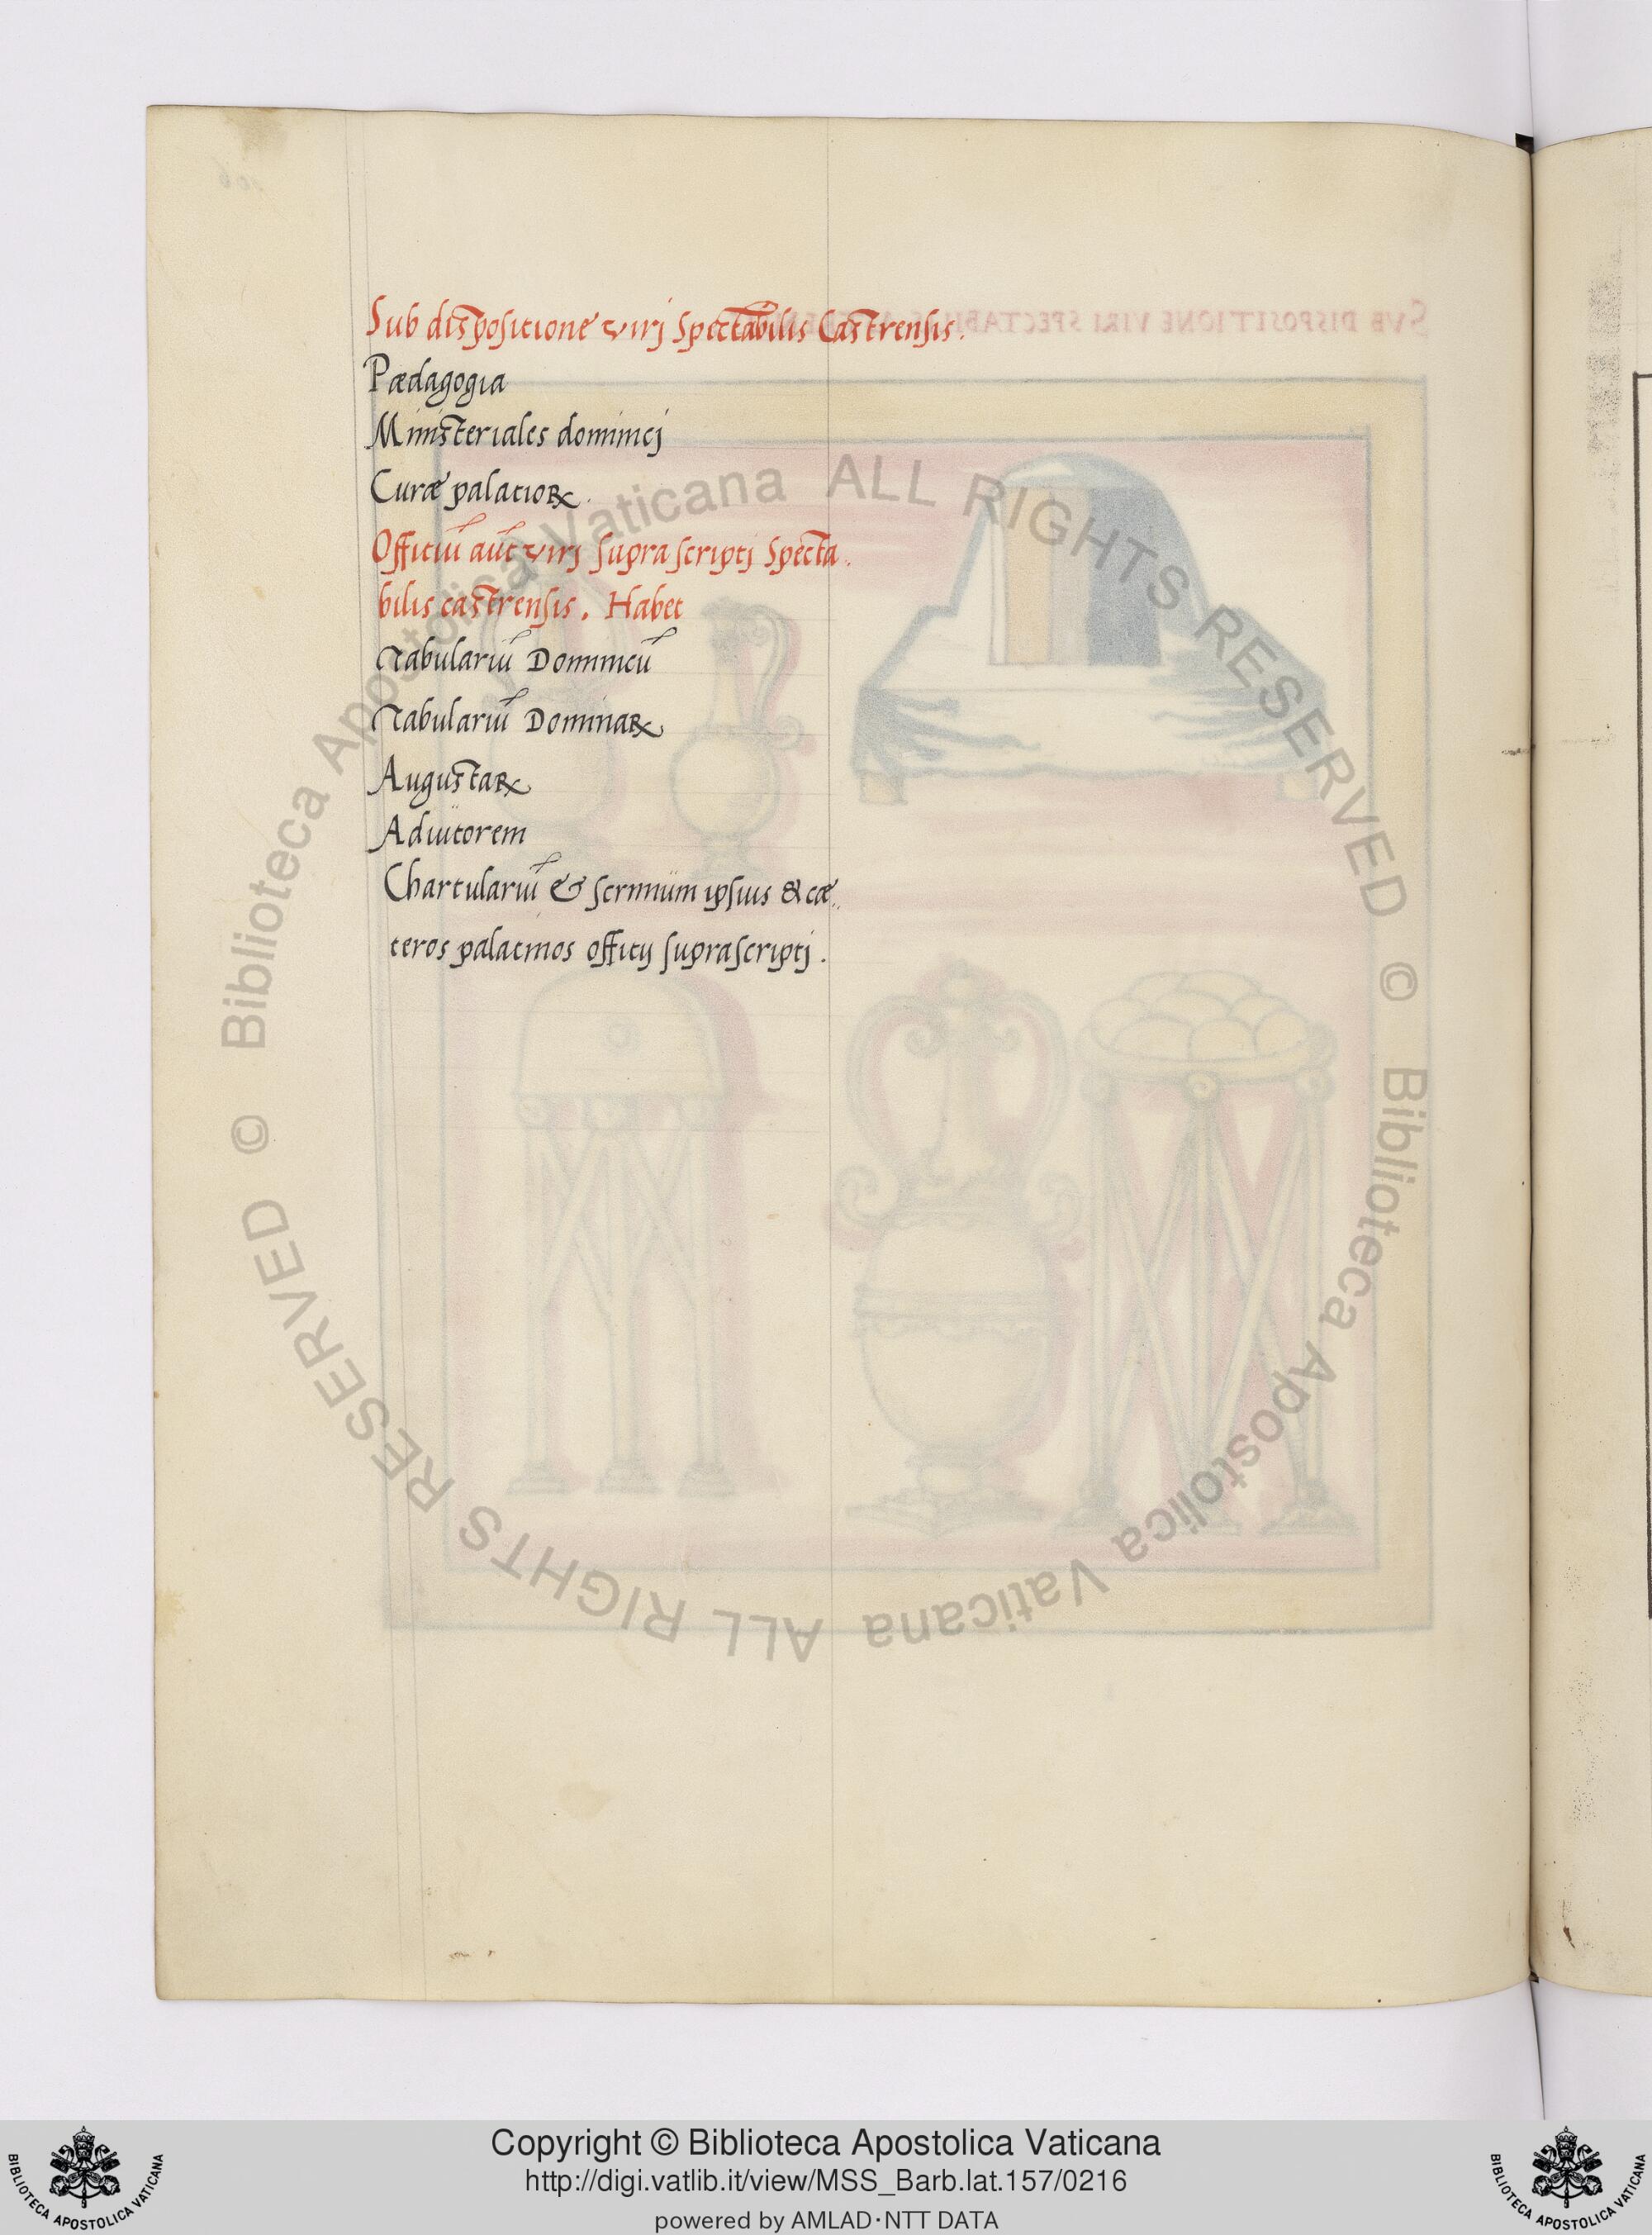 Sub dispositione viri Spectabilis Castrensis.
Pædagogia
Ministeriales dominici
Curæ palatioꝝ.
Officiū aūt viri suprascripti Specta.
bilis castrensis. Habet
Tabulariū Dominicū
Tabulariū Dominaꝝ
Augustaꝝ
Adiutorem
Chartulariū & scrinium ipsius & cæ..
teros palatinos officij suprascripti.
SVB DISPOSITIONE VIRI SPECTABILIS
© Biblioteca Apostolica Vaticana ALL RIGHTS RESERVED © Biblioteca Apostolica Vaticana ALL RIGHTS RESERVED
Copyright © Biblioteca Apostolica Vaticana
http://digi.vatlib.it/view/MSS_Barb.lat.157/0216
powered by AMLAD·NTT DATA
BIBLIOTECA APOSTOLICA VATICANA
BIBLIOTECA APOSTOLICA VATICANA